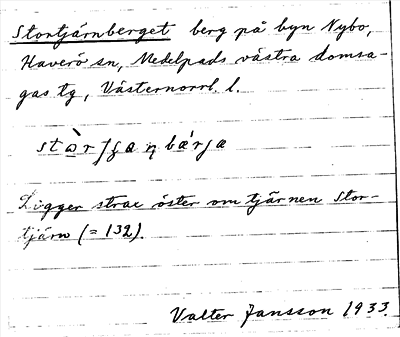 Stortjärnberget berg på byn Nybo,
Haverö sn, Medelpads västra domsa-
gas tg, Västernorrl. l.
Ligger strax öster om tjärnen Stor-
tjärn (= 132).
Valter Jansson 1933.